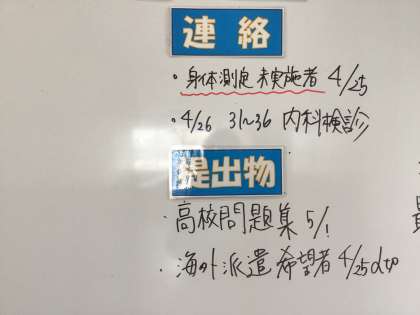 連絡
・身体測定 未実施者 4/25
・4/26 31~36 内科検診
提出物
・高校問題集 5/1
・海外派遣希望者 4/25